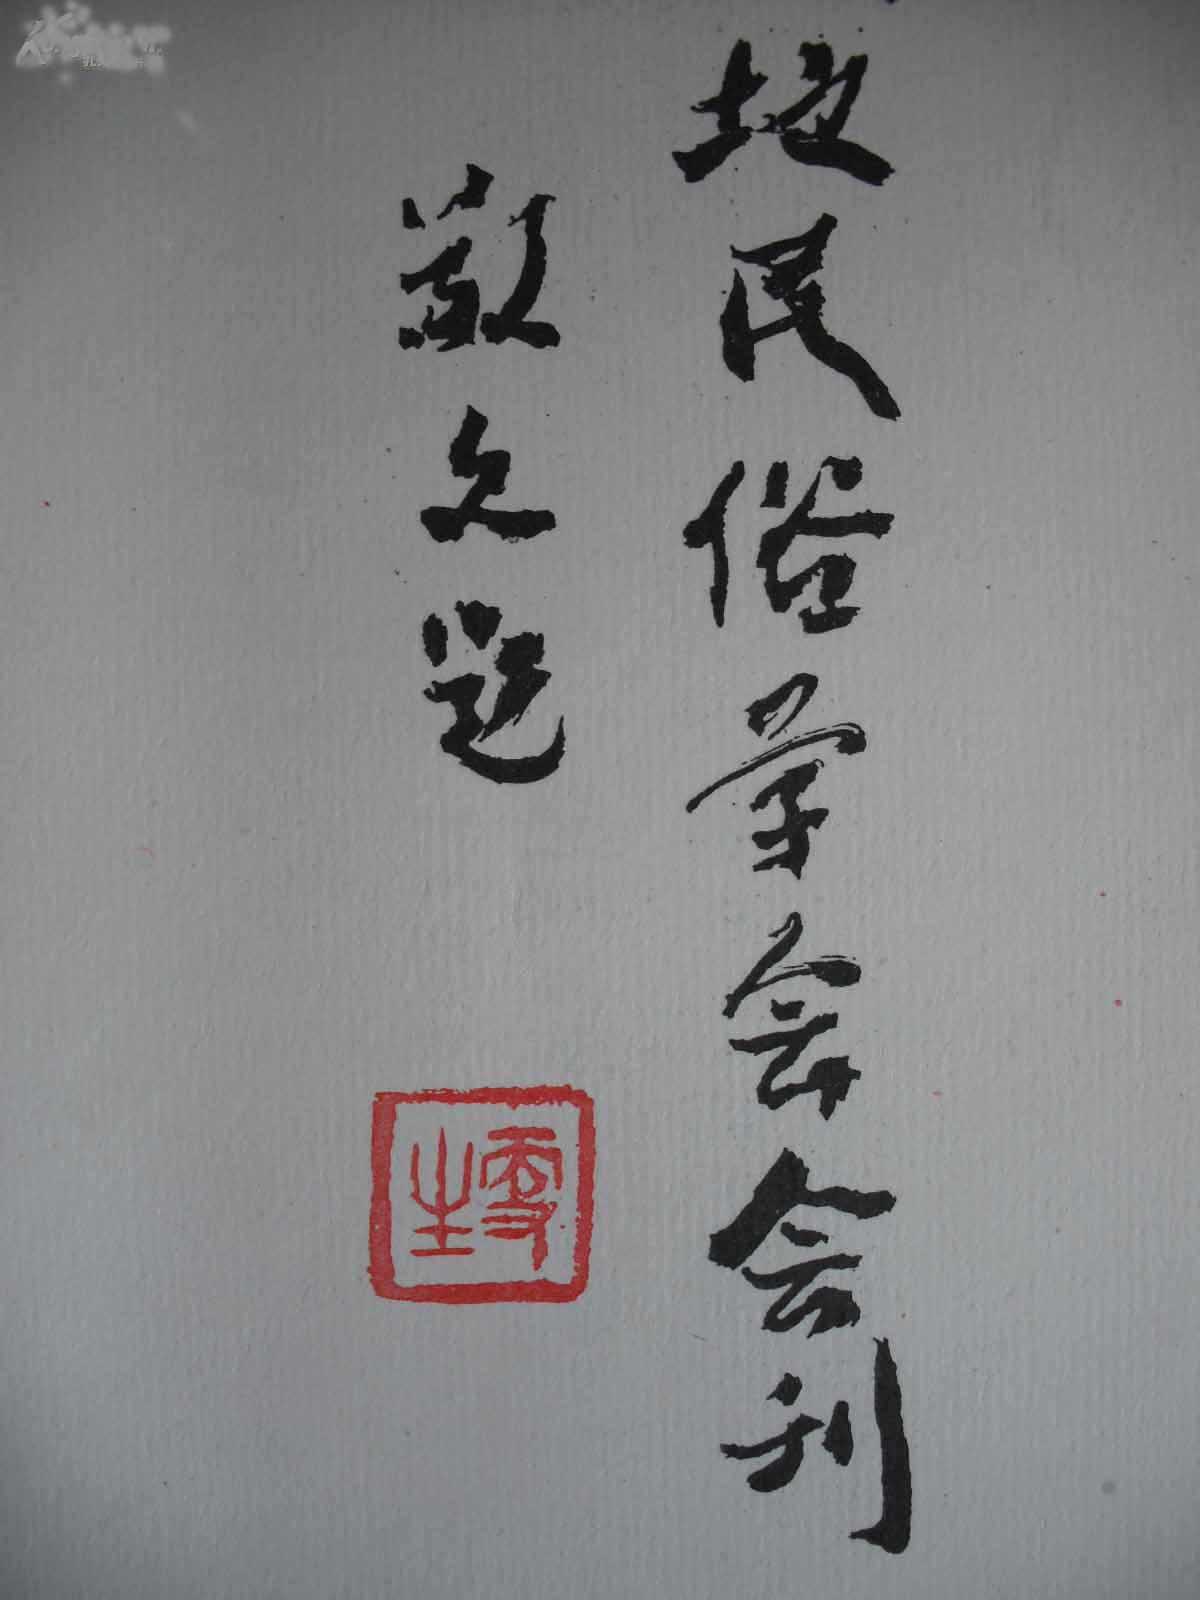 地民俗学会会刊
敬文题